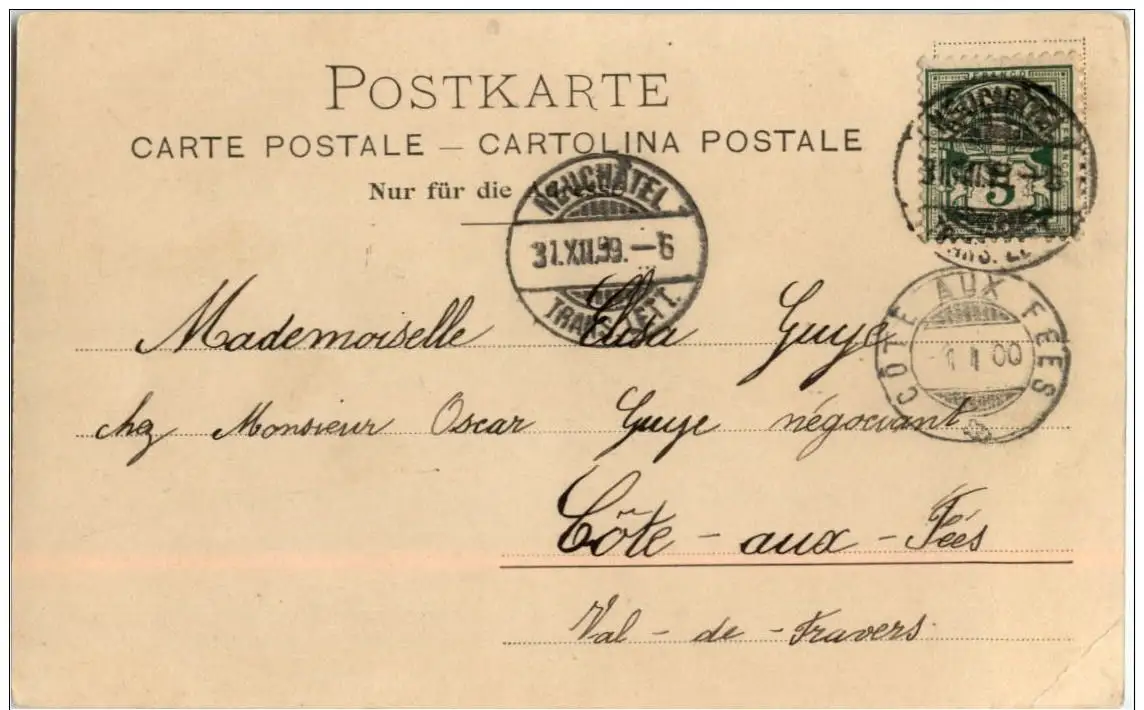 POSTKARTE
CARTE POSTALE – CARTOLINA POSTALE
Nur für die Adresse
FRANCO
5
31.XII.99.–6
NEUCHÂTEL
31.XII.99.–6
TRANS. LETT.
CÔTE AUX FÉES
1 I 00
Mademoiselle Elisa Guye
chez Monsieur Oscar Guye négociant
Côte - aux - Fées
Val - de - Travers